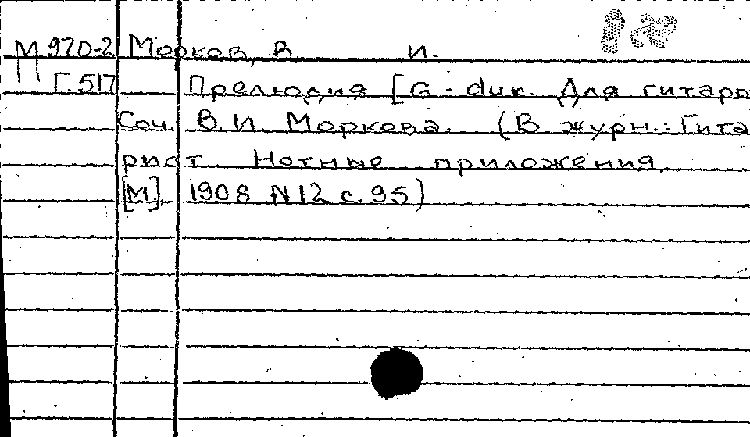 М 970-2 Морков, В И.
Г 517 Прелюдия [G-dur. Для гитары
Соч. В.И. Моркова. (В журн.: Гита
рист. Нотные приложения,
[М]. 1908 N12 с.95)